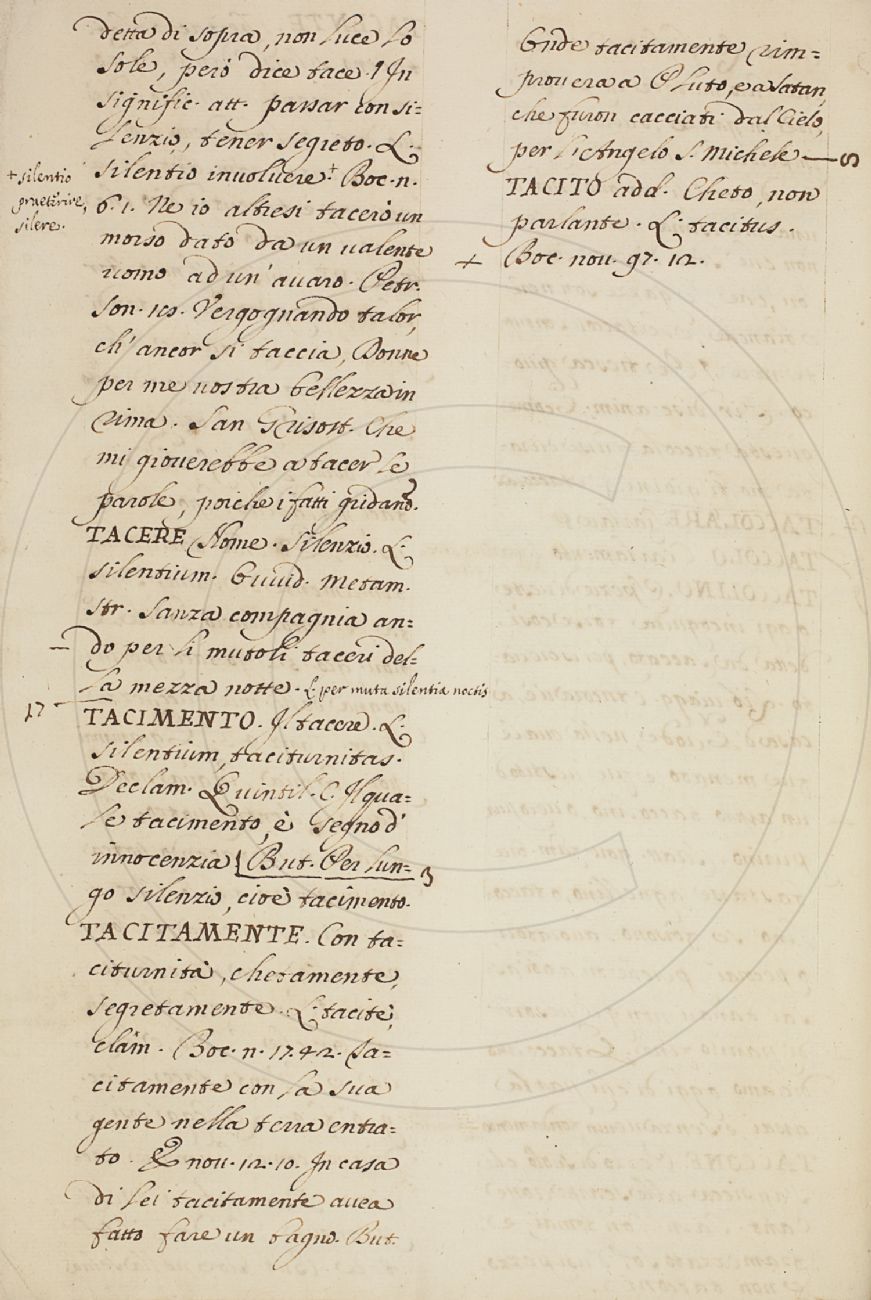 detta di sopra, non luce lo
sole, però dice tace. ¶ In
signific. att. passar con si=
lenzio, tener segreto. L.
silentio involuere + Boc. n.
+ silentio
praeterire,
silere.
6. 1. Ne io altresi tacerò un
morso dato da un valente
uomo ad un' auaro. Petr.
son. 18. Vergognando talor,
ch' ancor si taccia, Donna
per me uostra bellezza in
rima. San Grisost. Che
mi giouerebbe a tacer le
parole, poiche i fatti gridano?
TACERE Nome. Silenzio. L.
silentium. Ouuid. Metam.
str. Sanza compagnia an=
do per li mutoli taceri del=
la mezza notte. L. per muta silentia noctis
17
TACIMENTO. Il tacere. L.
silentium, taciturnitas.
Declam. Quintil. C. Il qua=
le tacimento, è segno d'
innocenzia [But. Per lun= 3
go silenzio, cioè tacimento.
TACITAMENTE. Con ta=
citurnità, chetamente,
segretamente. L. tacitè,
clàm. Boc. n. 17. 42. Ta=
citamente con la sua
gente nella terra entra=
to. E nou. 12. 10. In casa
di lei tacitamente auea
fatto fare un bagno. But.
Onde tacitamente rim=
prouera a Pluto, e a Satan,
che furon cacciati dal Cielo,
per li Angelo S. Michele
TACITO add. Cheto, non
parlante. L. tacitus.
+ Boc. nou. 97. 12.